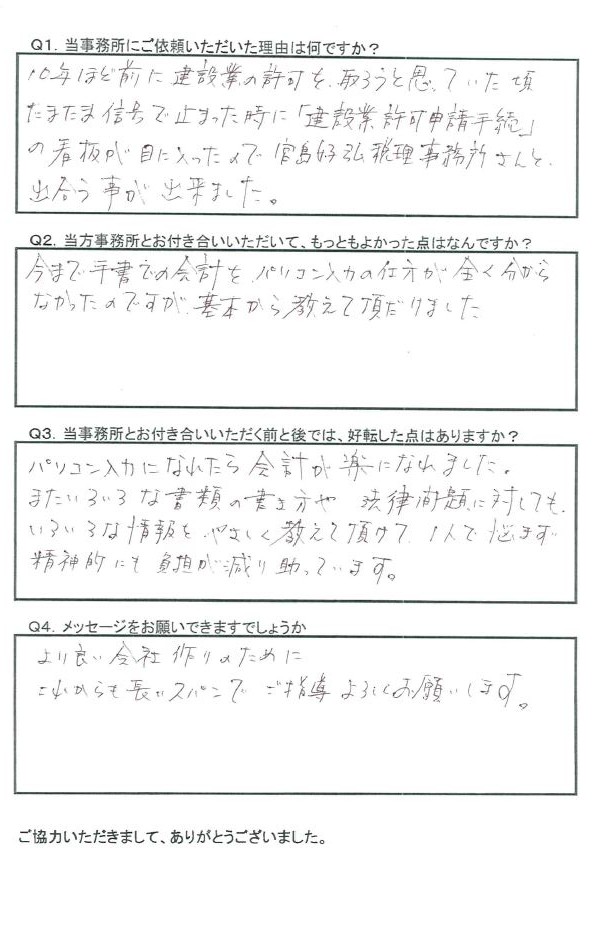 Q1. 当事務所にご依頼いただいた理由は何ですか?
10年ほど前に建設業の許可を、取ろうと思っていた頃
たまたま信号で止まった時に「建設業許可申請手続」
の看板が目に入ったので宮島好弘税理事務所さんと、
出合う事が出来ました。
Q2. 当方事務所とお付き合いいただいて、もっともよかった点はなんですか?
今まで手書での会計を、パソコン入力の仕方が全く分から
なかったのですが、基本から教えて頂だけました
Q3. 当事務所とお付き合いいただく前と後では、好転した点はありますか?
パソコン入力になれたら会計が楽になれました。
またいろいろな書類の書き方や 法律問題に対しても、
いろいろな情報を、やさしく教えて頂けて、1人で悩まず
精神的にも負担が減り助っています。
Q4. メッセージをお願いできますでしょうか
より良い会社作りのために
これからも長いスパンで ご指導よろしくお願いします。
ご協力いただきまして、ありがとうございました。